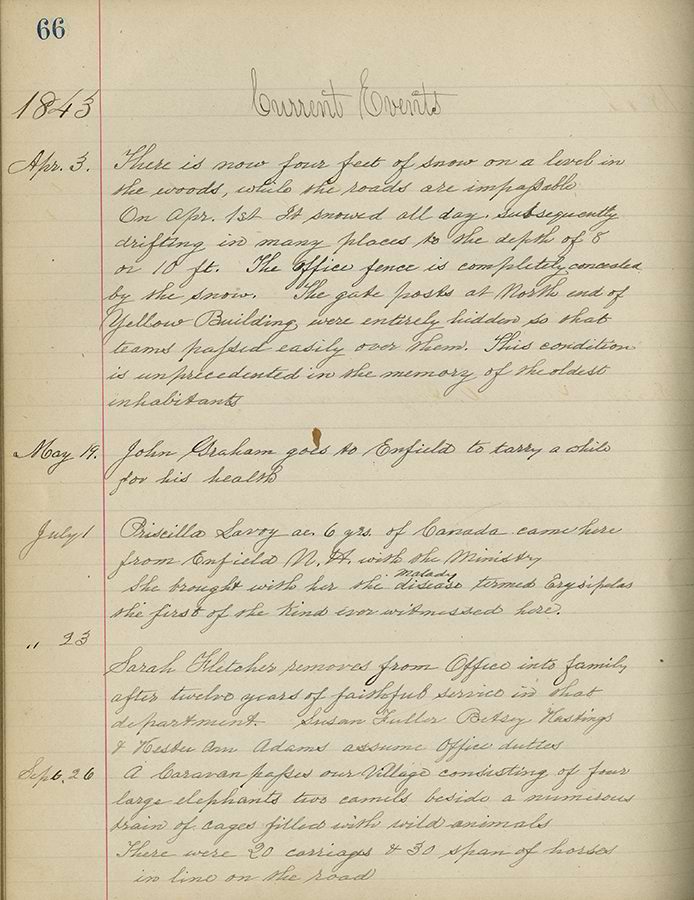 66
1843 Current Events
Apr. 3. There is now four feet of snow on a level in
the woods, while the roads are impassable
On Apr. 1st It snowed all day, subsequently
drifting in many places to the depth of 8
or 10 ft. The office fence is completely concealed
by the snow. The gate posts at North end of
Yellow Building were entirely hidden so that
teams passed easily over them. This condition
is unprecedented in the memory of the oldest
inhabitants
May 19. John Graham goes to Enfield to tarry a while
for his health
July 1 Priscilla Lavoy ae. 6 yrs. of Canada came here
from Enfield N. H. with the Ministry
She brought with her the disease malady termed Erysipelas
the first of the kind ever witnessed here.
" 23
Sarah Fletcher removes from Office into family
after twelve years of faithful service in that
department. Susan Fuller Betsey Hastings
& Hester Ann Adams assume Office duties
Sept. 26 A Caravan passes our Village consisting of four
large elephants two camels beside a numerous
train of cages filled with wild animals
There were 20 carriages & 30 span of horses
in line on the road